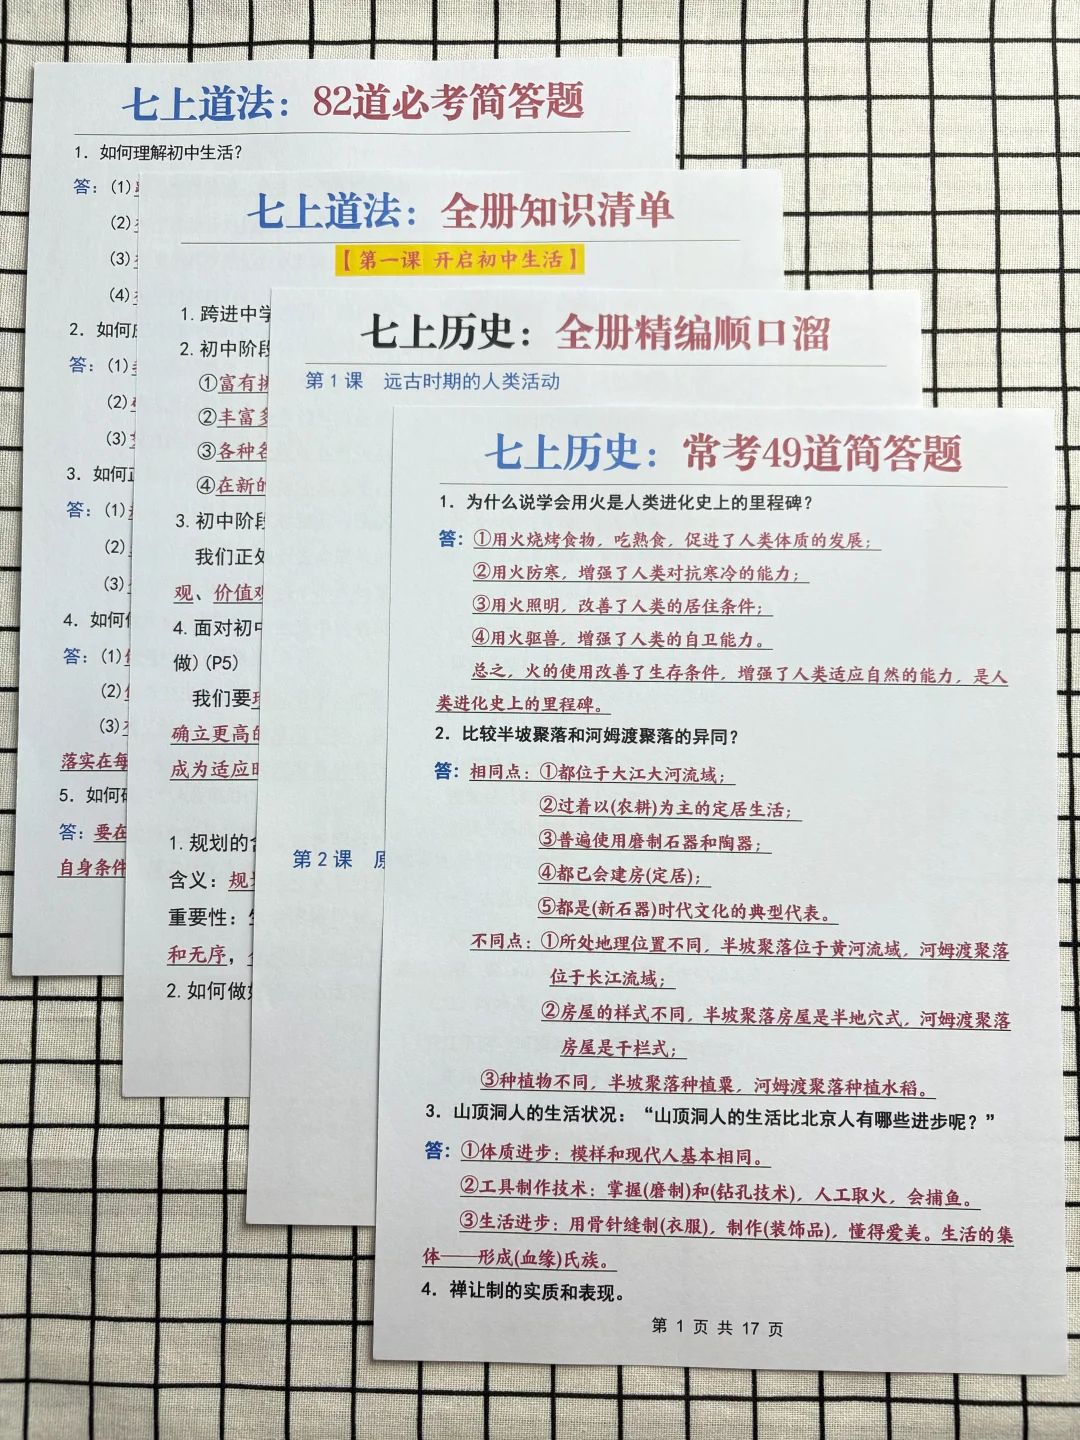 七上道法：82道必考简答题
1. 如何理解初中生活？
答：(1)
(2)
(3)
(4)
2. 如何
答：(1)
(2)
(3)
3. 如何正
答：(1)
(2)
(3)
4. 如何
答：(1)
(2)
(3)
落实在每
5. 如何
答：要在
自身条件
七上道法：全册知识清单
【第一课 开启初中生活】
1. 跨进中学
2. 初中阶段
①富有挑
②丰富多
③各种各
④在新的
3. 初中阶段
我们正处
观、价值观
4. 面对初中
做)(P5)
我们要
确立更高的
成为适应时
1. 规划的含
含义：规
重要性：
和无序，
2. 如何做好
七上历史：全册精编顺口溜
第1课 远古时期的人类活动
第2课 原
七上历史：常考49道简答题
1. 为什么说学会用火是人类进化史上的里程碑？
答：①用火烧烤食物，吃熟食，促进了人类体质的发展；
②用火防寒，增强了人类对抗寒冷的能力；
③用火照明，改善了人类的居住条件；
④用火驱兽，增强了人类的自卫能力。
总之，火的使用改善了生存条件，增强了人类适应自然的能力，是人
类进化史上的里程碑。
2. 比较半坡聚落和河姆渡聚落的异同？
答：相同点：①都位于大江大河流域；
②过着以(农耕)为主的定居生活；
③普遍使用磨制石器和陶器；
④都已会建房(定居)；
⑤都是(新石器)时代文化的典型代表。
不同点：①所处地理位置不同，半坡聚落位于黄河流域，河姆渡聚落
位于长江流域；
②房屋的样式不同，半坡聚落房屋是半地穴式，河姆渡聚落
房屋是干栏式；
③种植物不同，半坡聚落种植粟，河姆渡聚落种植水稻。
3. 山顶洞人的生活状况：“山顶洞人的生活比北京人有哪些进步呢？”
答：①体质进步：模样和现代人基本相同。
②工具制作技术：掌握(磨制)和(钻孔技术)，人工取火，会捕鱼。
③生活进步：用骨针缝制(衣服)，制作(装饰品)，懂得爱美。生活的集
体——形成(血缘)氏族。
4. 禅让制的实质和表现。
第 1 页 共 17 页